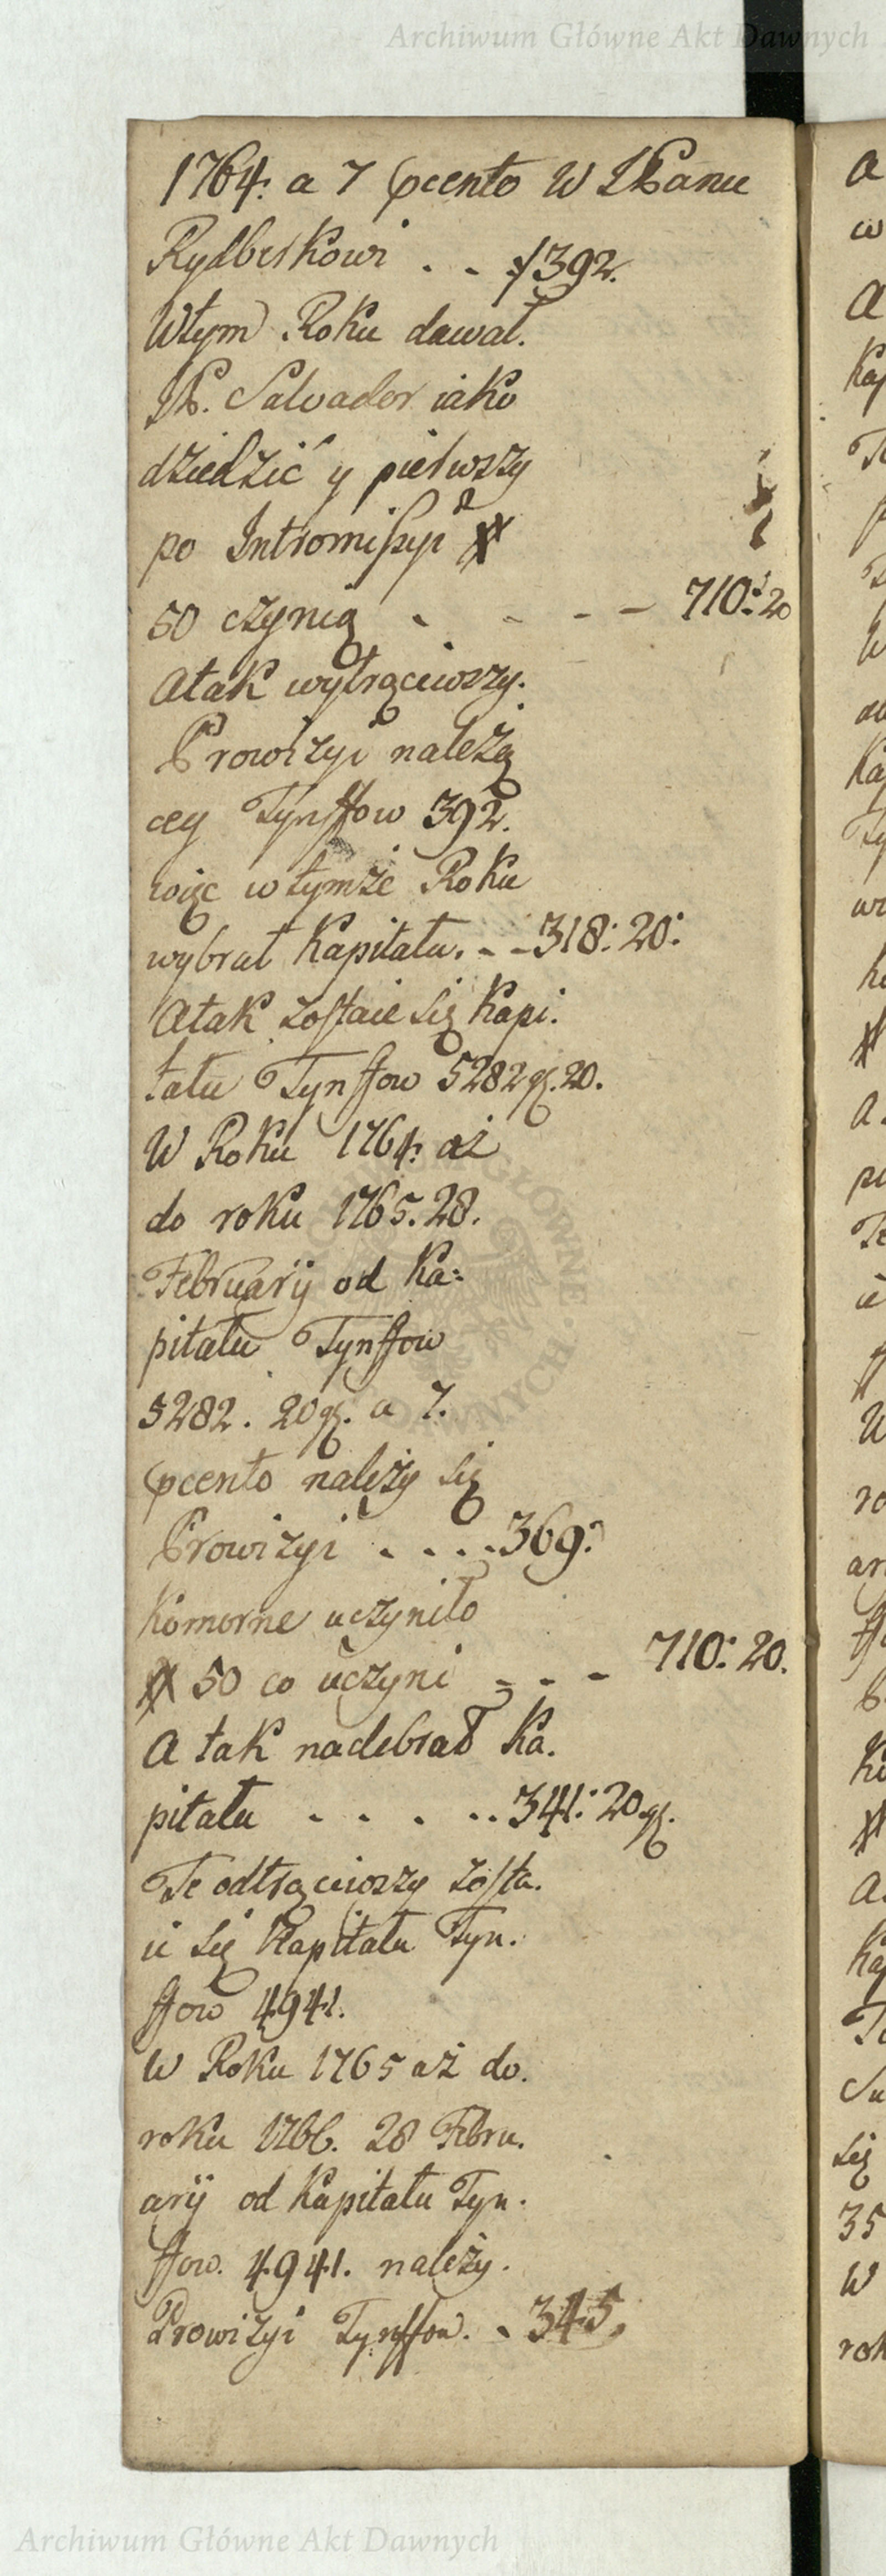 Archiwum Główne Akt Dawnych
1764. a 7 pcento W JPanu
Rydberkowi . . . 392.
W tym Roku dawał.
JP. Salvador iako
dziedzić y pierwszy
po Intromissyi #
50 czynią . - - - 710:20
A tak wytrąciwszy.
Prowizyi należą
cey Tynffow 392.
więc w tymże Roku
wybrał Kapitału. - - 318:20:
A tak zostaie się Kapi.
tału Tynffow 5282 gr. 20.
W Roku 1764. aż
do roku 1765. 28.
February od Ka:
pitału Tynffow
5282. 20 gr. a 7.
pcento należy się
Prowizyi . . . . 369:
Komorne uczyniło
# 50 co uczyni - - - 710:20.
A tak nadebrał Ka.
pitału . . . . . . 341:20 gr.
Te odtrąciwszy zosta.
ie się Kapitału Tyn.
ffow 4941.
W Roku 1765 aż do.
roku 1766. 28 Febru.
arij od Kapitału Tyn.
ffow. 4941. należy.
Prowizyi Tynffow. - 345.
Archiwum Główne Akt Dawnych